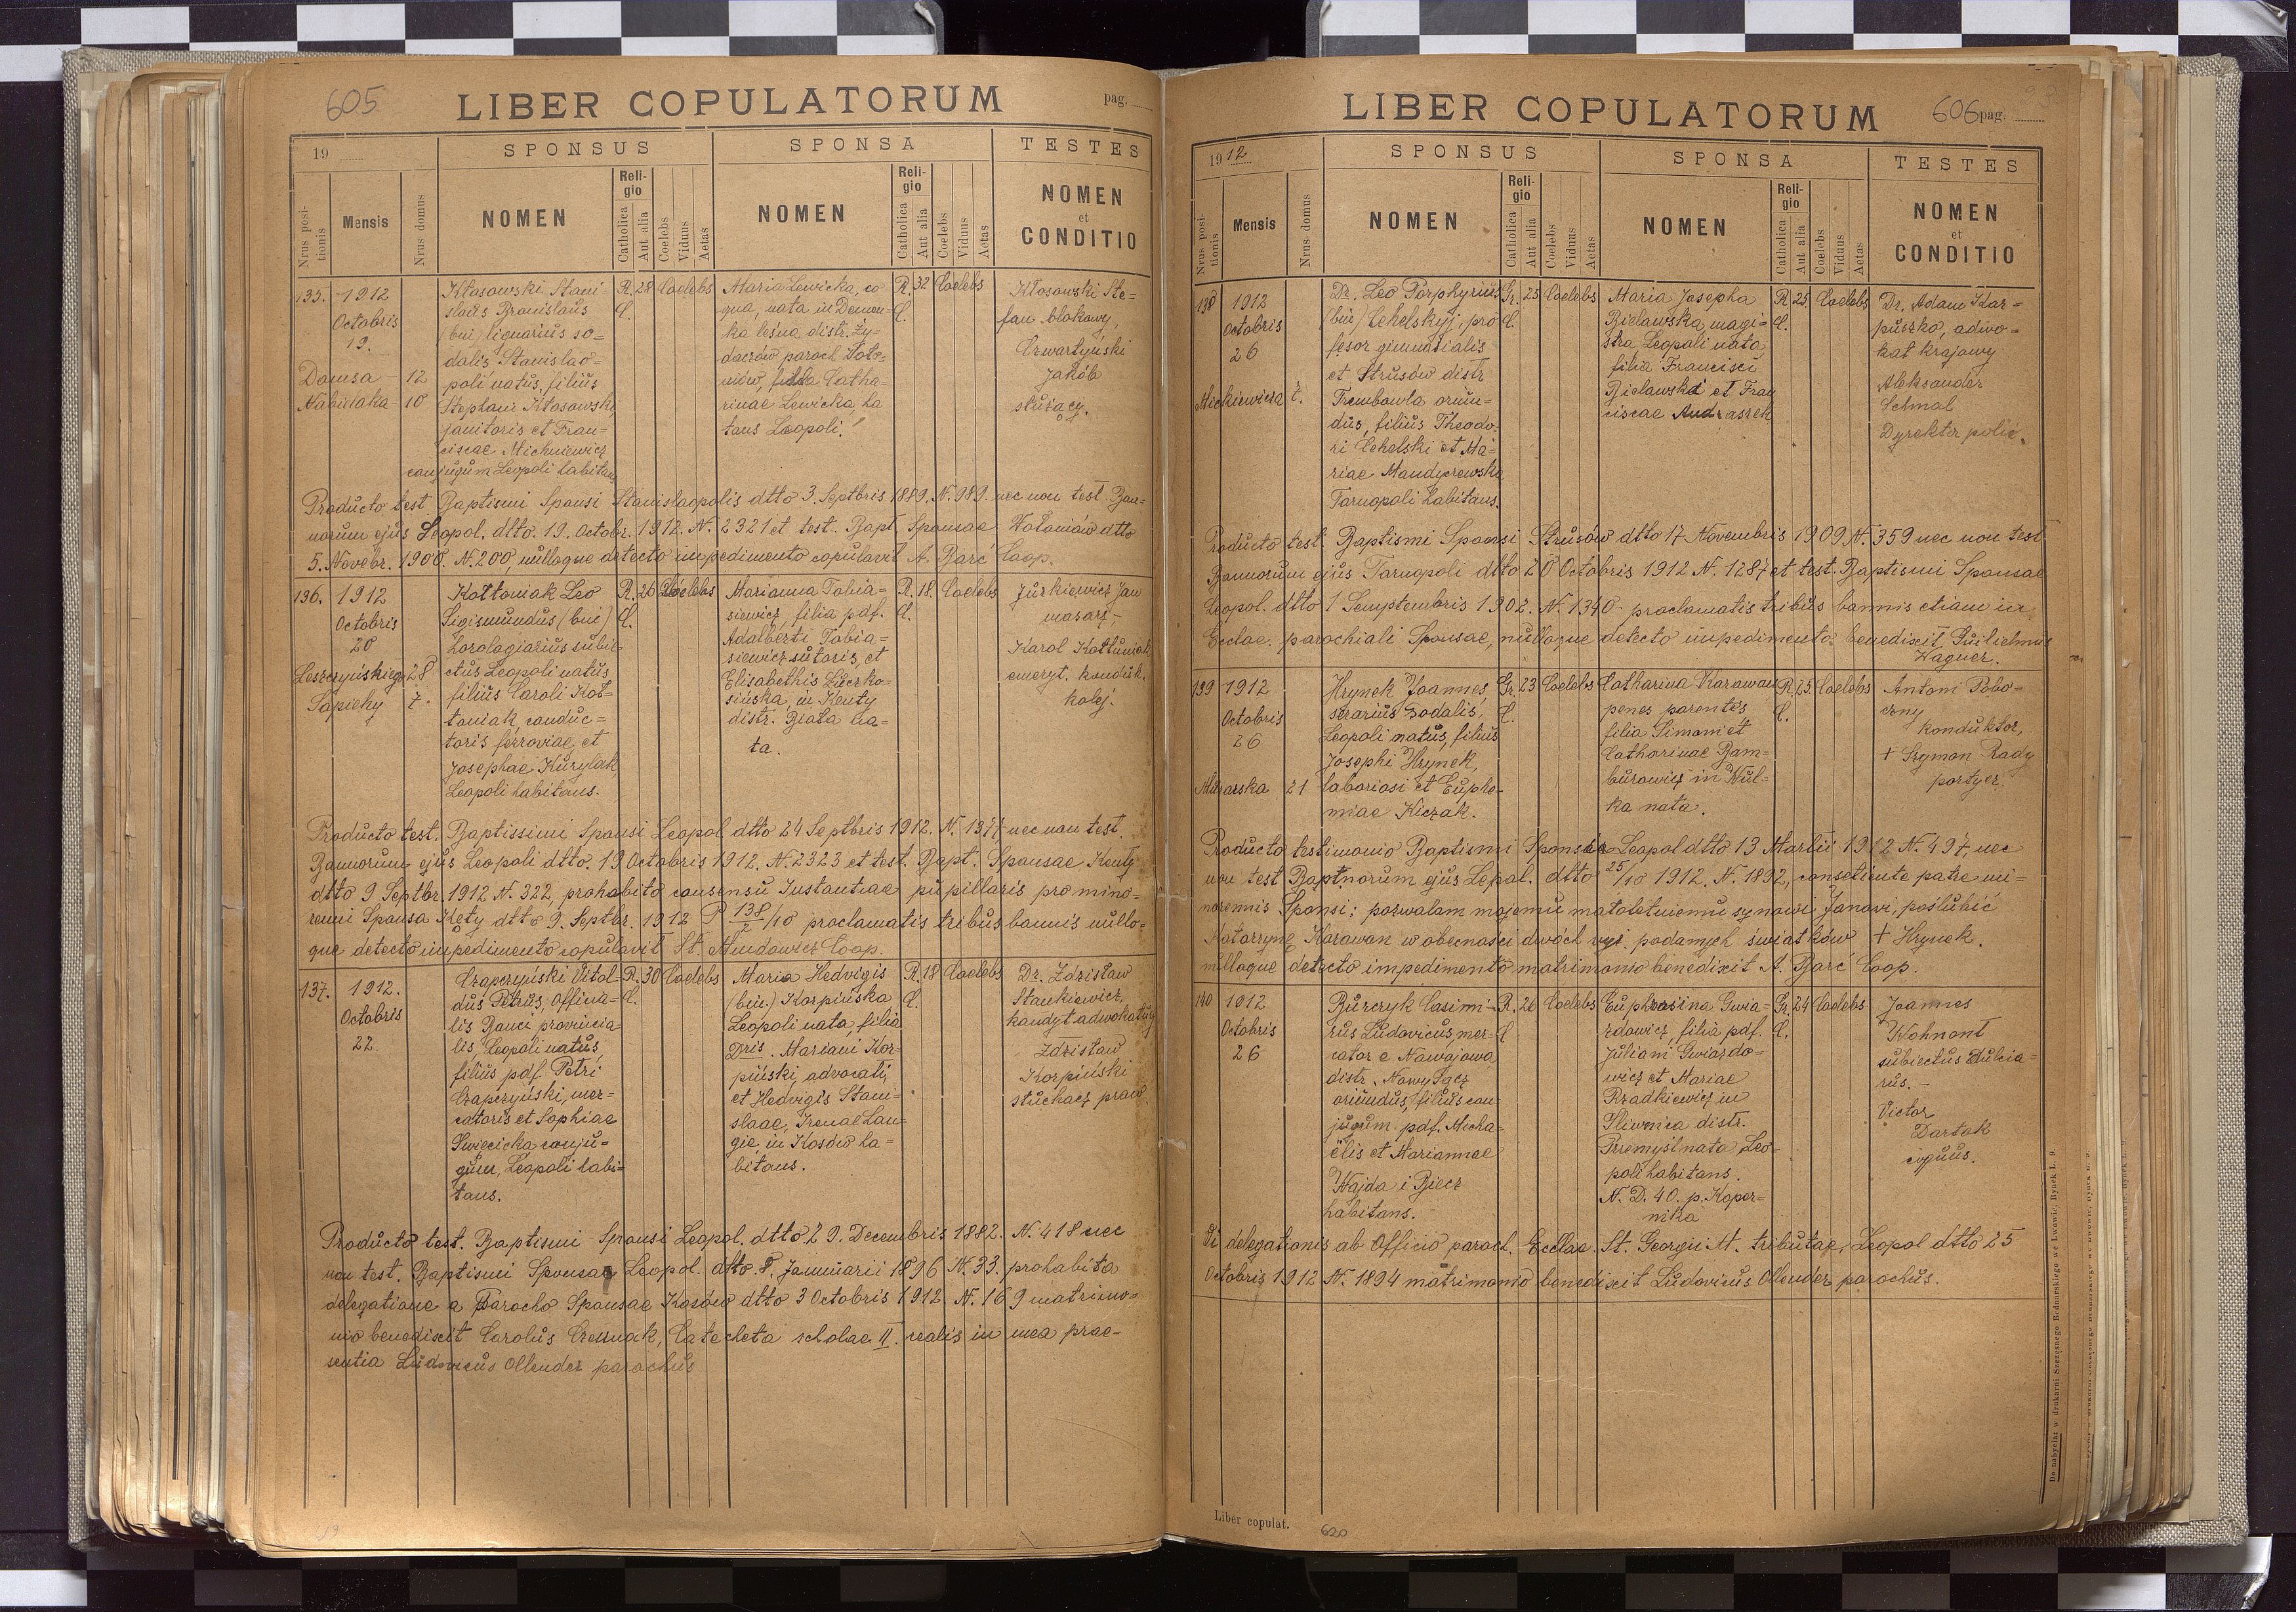 605
LIBER COPULATORUM
pag.
19
SPONSUS
SPONSA
TESTES
Nrus posi-
tionis
Mensis
Nrus domus
NOMEN
Reli-
gio
Catholica
Aut alia
Coelebs
Viduus
Aetas
NOMEN
Reli-
gio
Catholica
Aut alia
Coelebs
Viduus
Aetas
NOMEN
et
CONDITIO
135.
1912
Octobris
19.
Domsa - 12
Nabielaka - 10
Kłosowski Stani-
slaus Bronislaus
(bin) lignarius so-
dalis, Stanislao-
poli natus, filius
Stephani Kłosowski
janitoris et Fran-
ciscae Michniewicz
conjugum Leopoli habitans
R. 28 Coelebs
C.
Maria Lewicka, co
qua, nata in Demen-
ka leśna distr. Ży-
daczów paroch Woło-
niów, filia Catha-
rinae Lewicka, ha
tans Leopoli.
R 32 Coelebs
C.
Kłosowski Ste-
fan blokowy,
Czwartyński
Jakób
służący.
Producto test Baptismi Sponsi Stanislaopolis dtto 3. Septbris 1889. N. 989. nec non test Ban-
norum ejus Leopol. dtto. 19. Octobr. 1912. N. 2321 et test. Bapt Sponsae Wołoniów dtto
5. Novebr. 1908. N. 200, nulloque detecto impedimento copulavit A. Barć Coop.
136.
1912
Octobris
20
Leszczyńskiego 28
Sapiehy 7.
Kołtoniak Leo
Sigismundus (bin)
horologiarius subie-
ctus Leopoli natus,
filius Caroli Koł-
toniak, conduc-
toris ferroviae, et
Josephae Kurylak
Leopoli habitans.
R. 26 Coelebs
C.
Marianna Tobia-
siewicz, filia pdf.
Adalberti Tobia-
siewicz sutoris, et
Elisabethis Luczko-
sińska, in Kenty
distr. Biała na-
ta.
R. 18. Coelebs
C.
Jurkiewicz Jan
masarz, -
Karol Kołtuniak
emeryt. konduk.
kolej.
Producto test. Baptissimi Sponsi Leopol dtto 24 Septbris 1912. N. 1377 nec non test.
Bannorum ejus Leopoli dtto. 19 Octobris 1912. N. 2323 et test. Bapt. Sponsae Kenty
dtto 9 Septbr. 1912 N. 322, prohabito consensu Instantiae pupillaris pro mino-
renni Sponsa Kęty dtto 9. Septbr. 1912 P 138/2/10 proclamatis tribus bannis nullo-
que detecto impedimento copulavit St. Audowicz Coop.
137.
1912.
Octobris
22.
Czapczyński Vitol-
dus Petrus, officia-
lis Banci provincia-
lis, Leopoli natus,
filius pdf. Petri
Czapczyński, mer-
catoris et Sophiae
Święcicka conju-
gum, Leopoli habi-
tans.
R. 30 Coelebs
C.
Maria Hedvigis
(bin.) Korpińska
Leopoli nata, filia
Dris. Mariani Kor-
piński, advocati,
et Hedvigis Stani-
slaae, Irenae Lan-
gie, in Kosów ha-
bitans.
R. 18 Coelebs
C.
Dr. Zdzisław
Stankiewicz,
kandyt adwokatury
Zdzisław
Korpiński
słuchacz praw.
Producto test. Baptismi Sponsi Leopol. dtto 29. Decembris 1882. N. 418 nec
non test. Baptismi Sponsae Leopol. dtto. 8. Januarii 1896 N. 33. prohabita
delegatione a Parocho Sponsae Kosów dtto 3 Octobris 1912 N. 169 matrimo-
nio benedixit Carolus Czesnak, Catecheta scholae II. realis in mea prae-
sentia Ludovicus Ollender parochus
606
LIBER COPULATORUM
pag.
19 12
SPONSUS
SPONSA
TESTES
Nrus posi-
tionis
Mensis
Nrus domus
NOMEN
Reli-
gio
Catholica
Aut alia
Coelebs
Viduus
Aetas
NOMEN
Reli-
gio
Catholica
Aut alia
Coelebs
Viduus
Aetas
NOMEN
et
CONDITIO
138
1912
Octobris
26
Mickiewicza 7.
Dr. Leo Porphyrius
(bin) Cehelskyj, pro
fesor gimnasialis
et Strusów distr
Trembowla oriun-
dus, filius Theodo-
ri Cehelski et Ma-
riae Mandyczewska
Tarnopoli habitans.
Gr. 25 Coelebs
C.
Maria Josepha
Bielawska, magi-
stra Leopoli nata
filia Francisci
Bielawski et Fran
ciscae Andraszek
R 25 Coelebs
C.
Dr. Adam Kar-
puszko, adwo-
kat krajowy
Aleksander
Schmal
Dyrektor polic.
Producto test. Baptismi Sponsi Strusów dtto 17 Novembris 1909 N. 359 nec non test
Bannorum ejus Tarnopoli dtto 20 Octobris 1912 N. 1287 et test. Baptismi Sponsae
Leopol. dtto 1 Semptembris 1902. N. 1340 - proclamatis tribus bannis etiam in
Ecclae. parochiali Sponsae, nulloque detecto impedimento benedixit Guilielmus
Wagner.
139
1912
Octobris
26
Murarska 21
Hrynek Joannes
serarius sodalis,
Leopoli natus, filius
Josephi Hrynek,
laboriosi et Euphe-
miae Kiczak.
Gr. 23 Coelebs
C.
Catharina Karawan
penes parentes
filia Simoni et
Catharinae Bam-
burowicz in Wul-
ka nata.
R. 25 Coelebs
C.
Antoni Pobo-
czny
konduktor,
+ Szymon Rady
portyer
Producto testimonio Baptismi Sponsi Leopol dtto 13 Martii 1912 N. 497, nec
non test Baptnorum ejus Lepol. dtto 25/10 1912. N. 1892, consetiente patre mi-
norennis Sponsi: pozwalam mojemu małoletniemu synowi Janowi, poślubić
Katarzynę Karawan w obecności dwóch wyż. podanych świadków + Hrynek.
nulloque detecto impedimento matrimonio benedixit A. Barć Coop.
140
1912
Octobris
26
Burczyk Casimi-
rus Ludovicus, mer-
cator e Nawajowa
distr. Nowy Sącz
oriundus, filius con-
jugum pdf. Micha-
ëlis et Mariannae
Wajda i Biecz
habitans.
R. 26 Coelebs
C.
Euphrosina Gwia-
zdowicz, filia pdf.
Juliani Gwiazdo-
wicz et Mariae
Rzadkiewicz in
Śliwnica distr.
Przemyśl nata, Leo-
poli habitans.
N. D. 40. p. Koper-
nika
Gr. 24 Coelebs
C.
Joannes
Wohmont
subiectus dulcia-
rus. -
Victor
Dartak
coquus.
Vi delegationis ab Officio paroch. Ecclae. St. Georgii M. tributae, Leopol dtto 25
Octobris 1912 N. 1894 matrimonio benedixit Ludovicus Ollender parochus.
Do nabycia: w drukarni Szczęsnego Bednarskiego we Lwowie, Rynek L. 9.
Liber copulat.
620